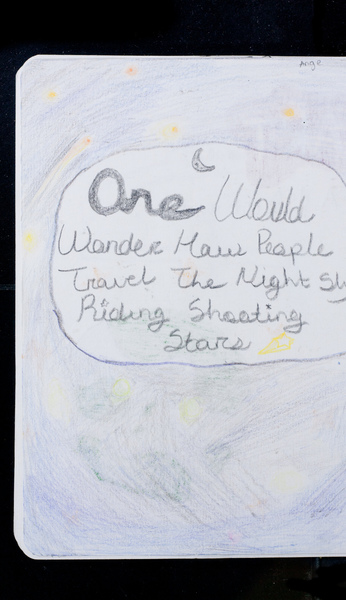 Ange
One Would
Wonder How People
Travel The Night Sk
Riding Shooting
Stars